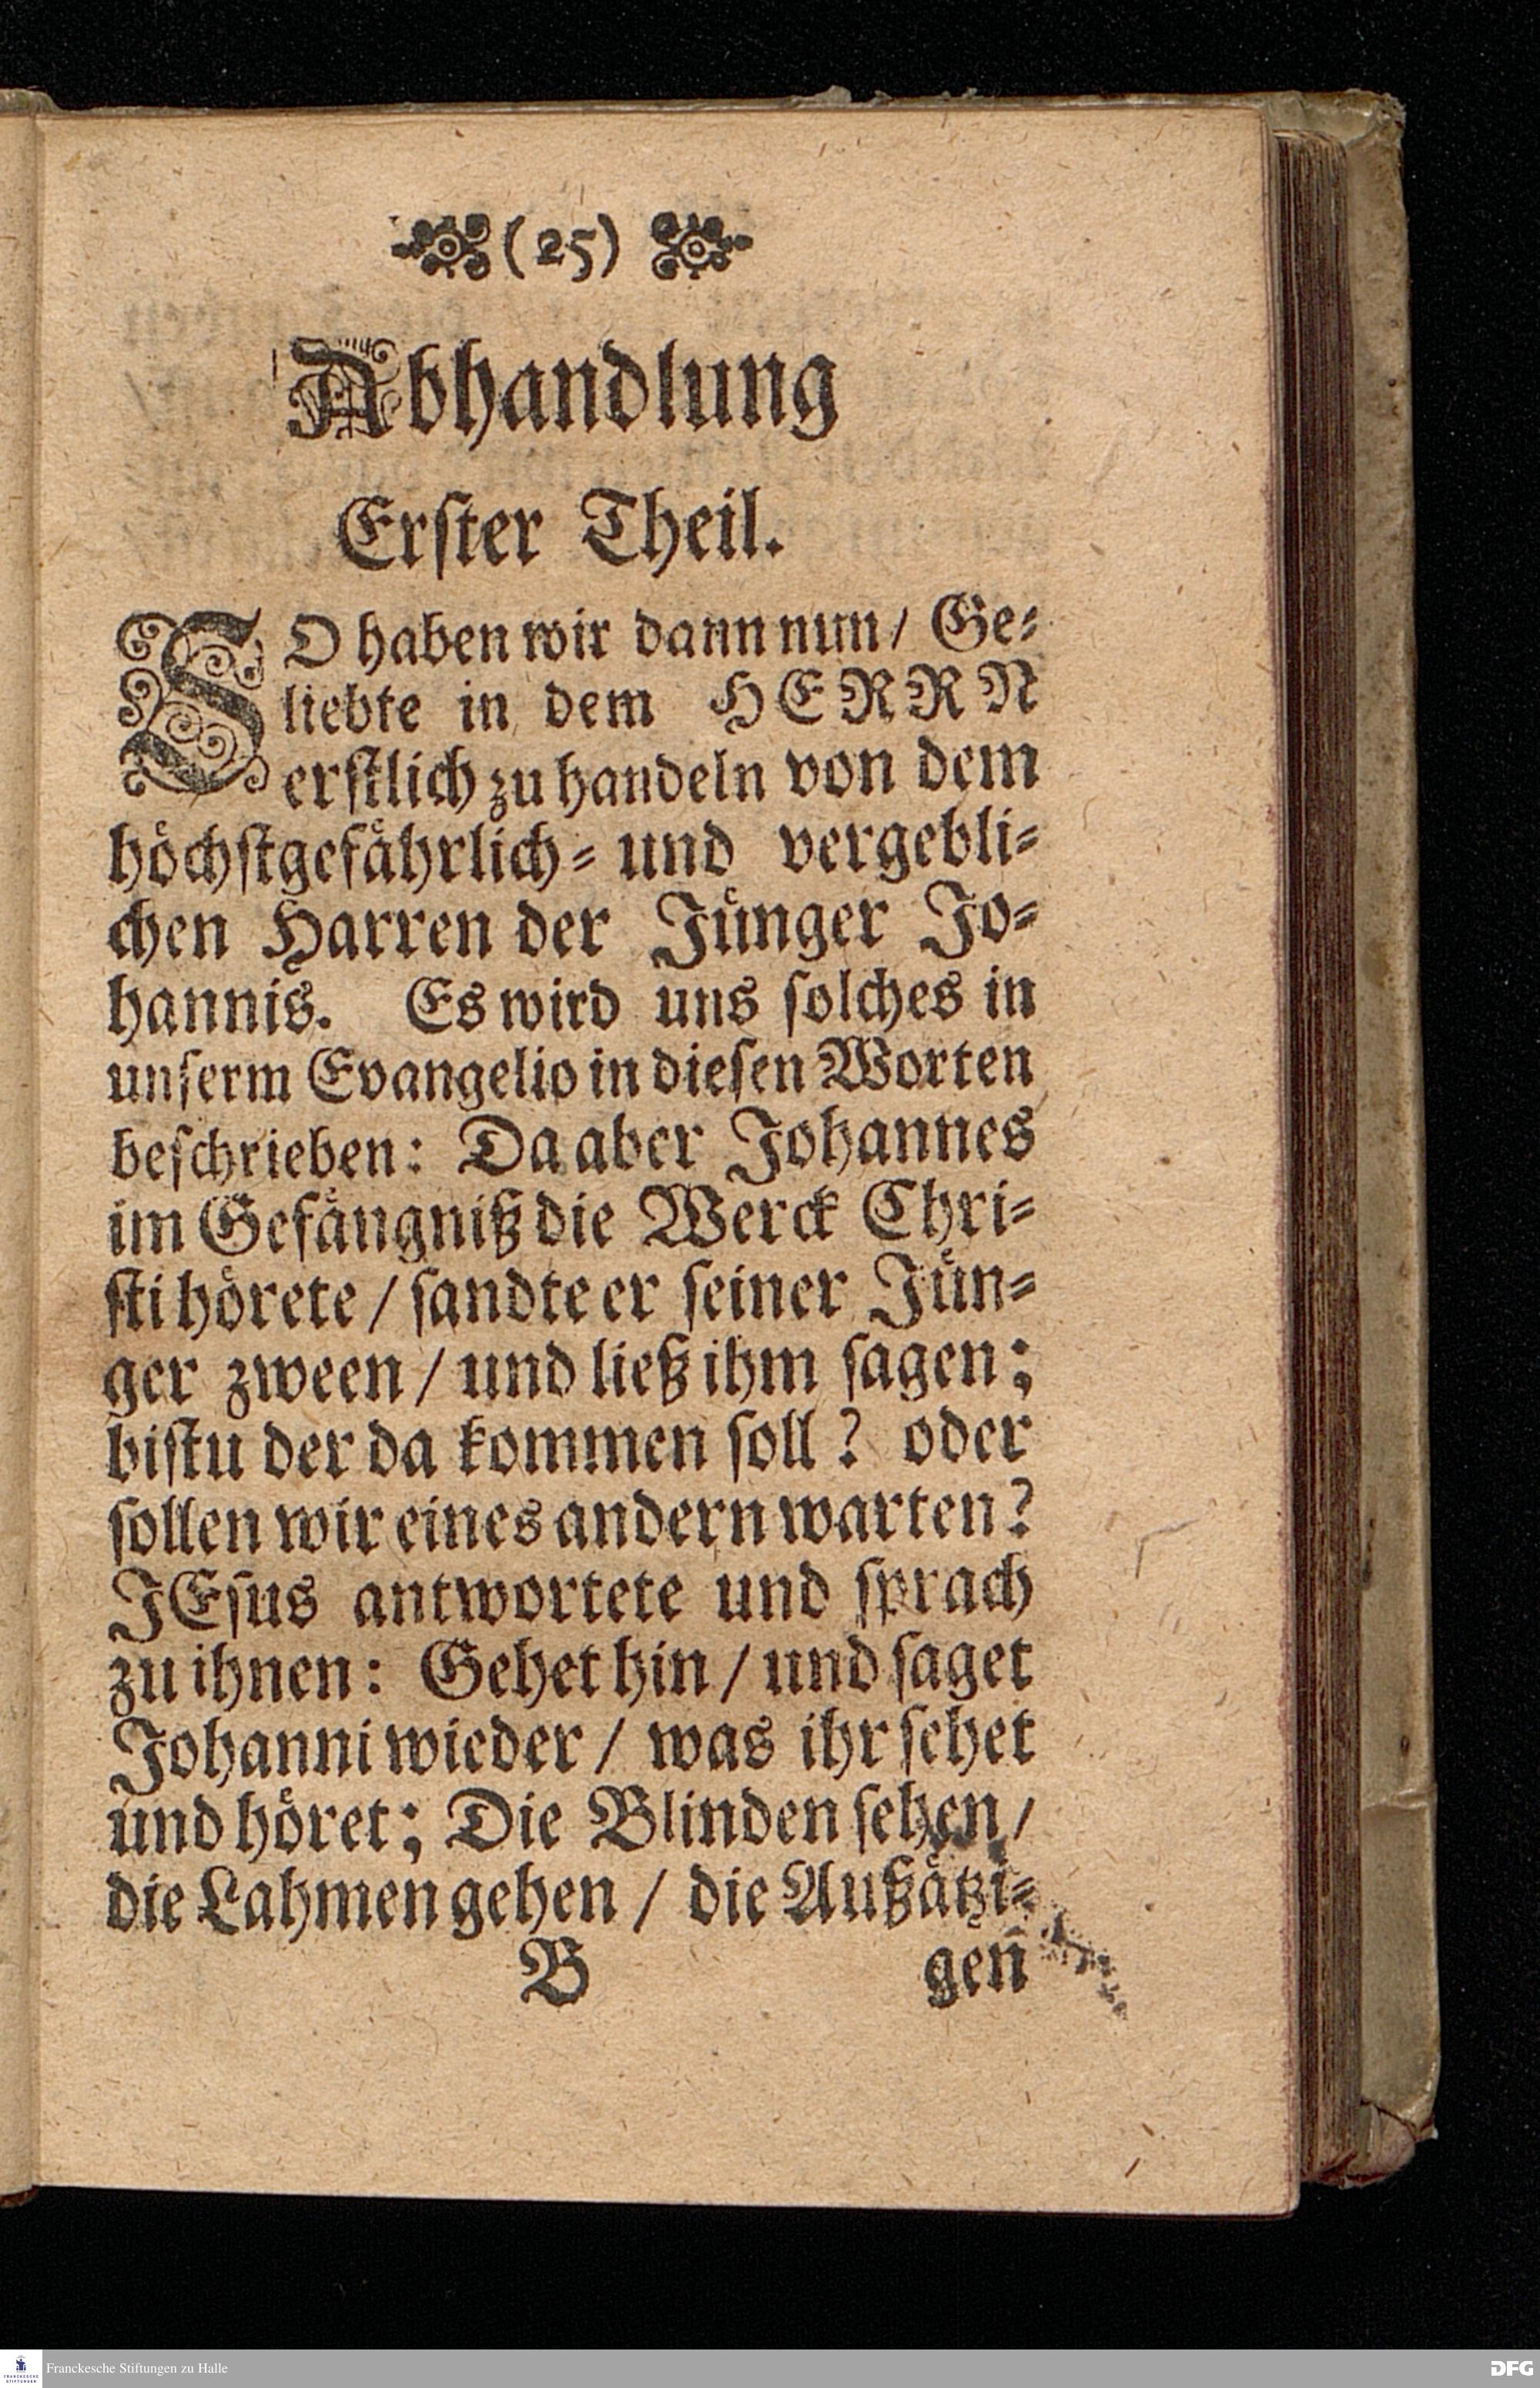 (25)
Abhandlung
Erſter Theil.
SO haben wir dann nun/ Ge⸗
liebte in dem HERRN
erſtlich zu handeln von dem
hoͤchſtgefaͤhrlich⸗ und vergebli⸗
chen Harren der Juͤnger Jo⸗
hannis. Es wird uns ſolches in
unſerm Evangelio in dieſen Worten
beſchrieben: Da aber Johannes
im Gefaͤngniß die Werck Chri⸗
ſti hoͤrete / ſandte er ſeiner Juͤn⸗
ger zween / und ließ ihm ſagen;
biſtu der da kommen ſoll? oder
ſollen wir eines andern warten?
JEſus antwortete und ſprach
zu ihnen: Gehet hin / und ſaget
Johanni wieder / was ihr ſehet
und hoͤret; Die Blinden ſehen /
die Lahmen gehen / die Außaͤtzi⸗
B gen
Franckesche Stiftungen zu Halle
FRANCKESCHE STIFTUNGEN
DFG